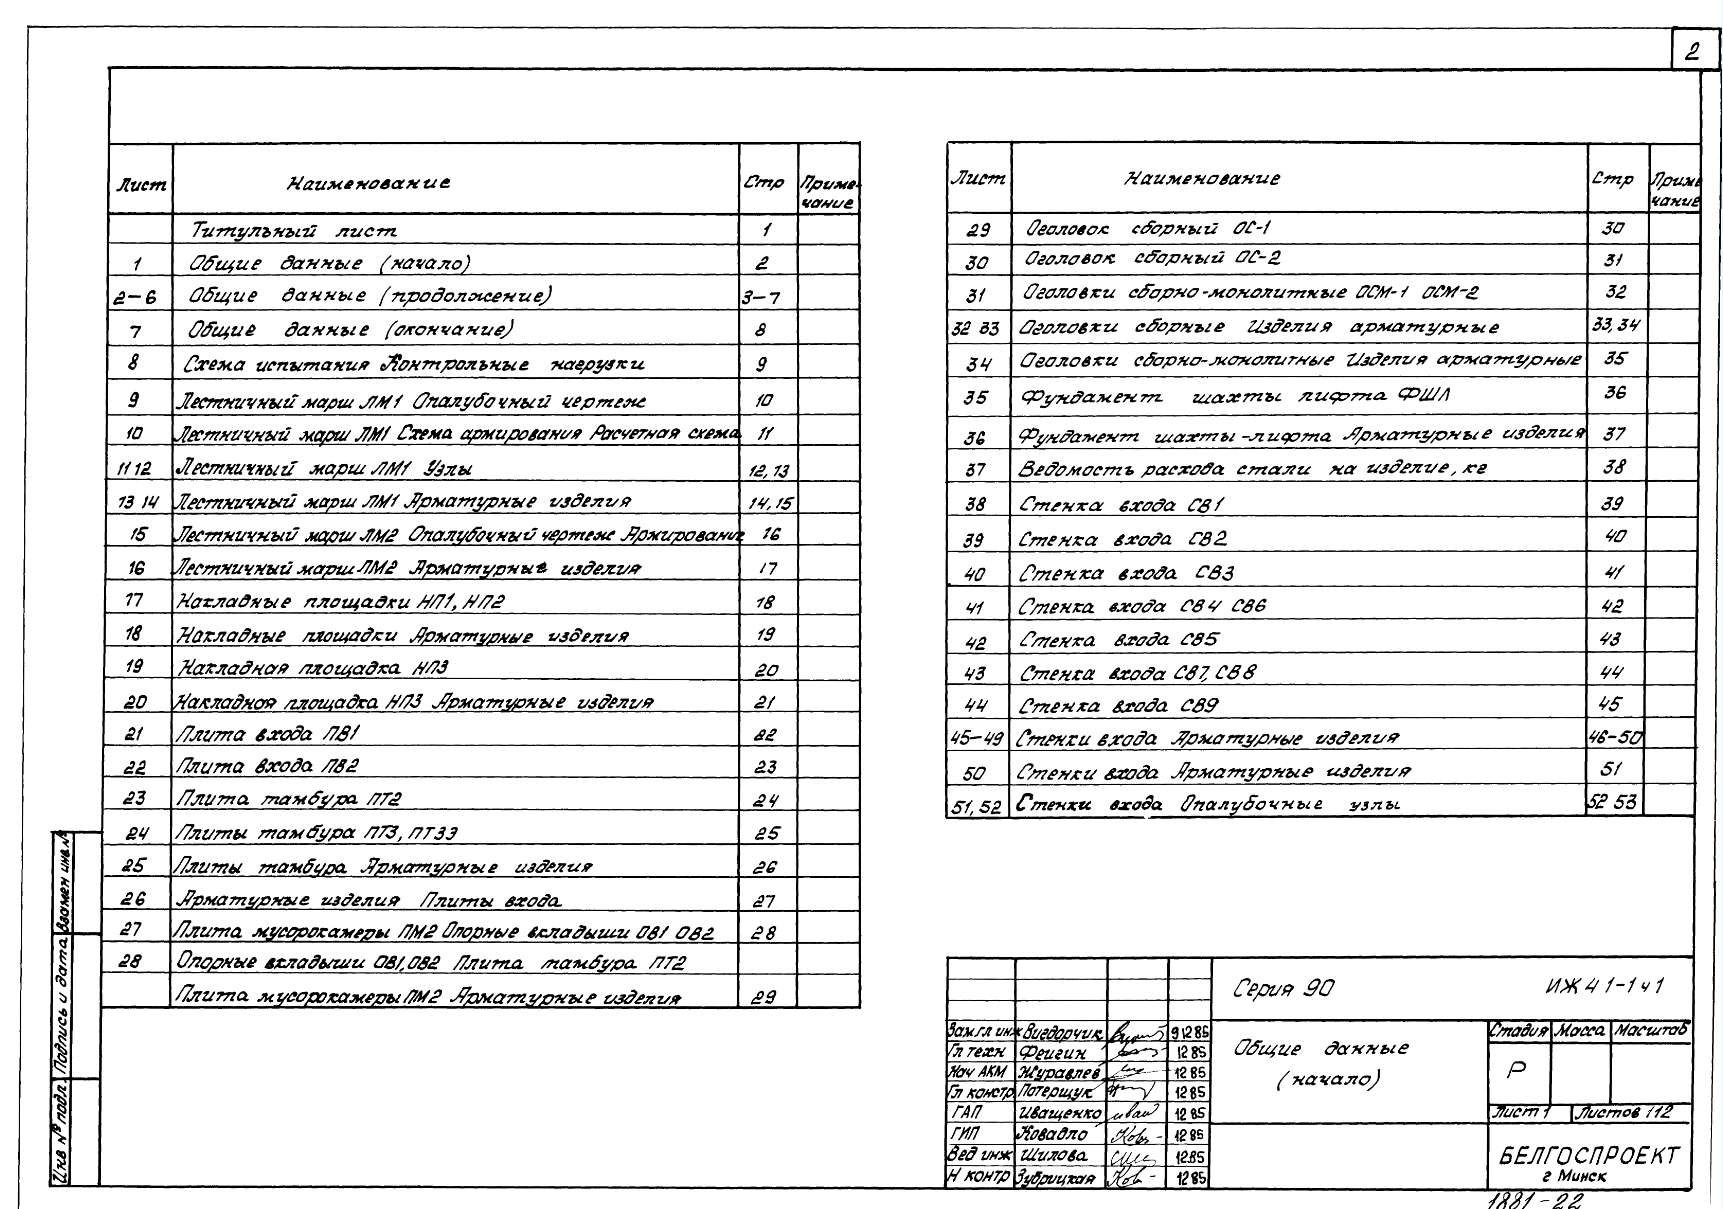 2
Лист Наименование Стр Приме-
чание
Титульный лист 1
1 Общие данные (начало) 2
2-6 Общие данные (продолжение) 3-7
7 Общие данные (окончание) 8
8 Схема испытания Контрольные нагрузки 9
9 Лестничный марш ЛМ1 Опалубочный чертеж 10
10 Лестничный марш ЛМ1 Схема армирования Расчетная схема 11
11 12 Лестничный марш ЛМ1 Узлы 12,13
13 14 Лестничный марш ЛМ1 Арматурные изделия 14,15
15 Лестничный марш ЛМ2 Опалубочный чертеж Армирование 16
16 Лестничный марш ЛМ2 Арматурные изделия 17
17 Накладные площадки НП1, НП2 18
18 Накладные площадки Арматурные изделия 19
19 Накладная площадка НП3 20
20 Накладная площадка НП3 Арматурные изделия 21
21 Плита входа ПВ1 22
22 Плита входа ПВ2 23
23 Плита тамбура ПТ2 24
24 Плиты тамбура ПТ3, ПТ3Э 25
25 Плиты тамбура Арматурные изделия 26
26 Арматурные изделия Плиты входа 27
27 Плита мусорокамеры ПМ2 Опорные вкладыши ОВ1 ОВ2 28
28 Опорные вкладыши ОВ1, ОВ2 Плита тамбура ПТ2
Плита мусорокамеры ПМ2 Арматурные изделия 29
Лист Наименование Стр Приме
чание
29 Оголовок сборный ОС-1 30
30 Оголовок сборный ОС-2 31
31 Оголовки сборно-монолитные ОСМ-1 ОСМ-2 32
32 33 Оголовки сборные Изделия арматурные 33,34
34 Оголовки сборно-монолитные Изделия арматурные 35
35 Фундамент шахты лифта ФШЛ 36
36 Фундамент шахты-лифта Арматурные изделия 37
37 Ведомость расхода стали на изделие, кг 38
38 Стенка входа СВ1 39
39 Стенка входа СВ2 40
40 Стенка входа СВ3 41
41 Стенка входа СВ4 СВ6 42
42 Стенка входа СВ5 43
43 Стенка входа СВ7, СВ8 44
44 Стенка входа СВ9 45
45-49 Стенки входа Арматурные изделия 46-50
50 Стенки входа Арматурные изделия 51
51,52 Стенки входа Опалубочные узлы 52 53
Взамен инв.№
Подпись и дата
Инв № подл.
Зам.гл инж Выгдорчик 9 12 85
Гл техн Фейгин 12 85
Нач АКМ Журавлев 12 85
Гл констр Патерщук 12 85
ГАП Иващенко 12 85
ГИП Ковадло 12 85
Вед инж Шилова 12.85
Н контр Зубрицкая 12 85
Серия 90 ИЖ 41-1ч1
Общие данные
(начало)
Стадия Масса Масштаб
Р
Лист 1 Листов 112
БЕЛГОСПРОЕКТ
г Минск
1881-22